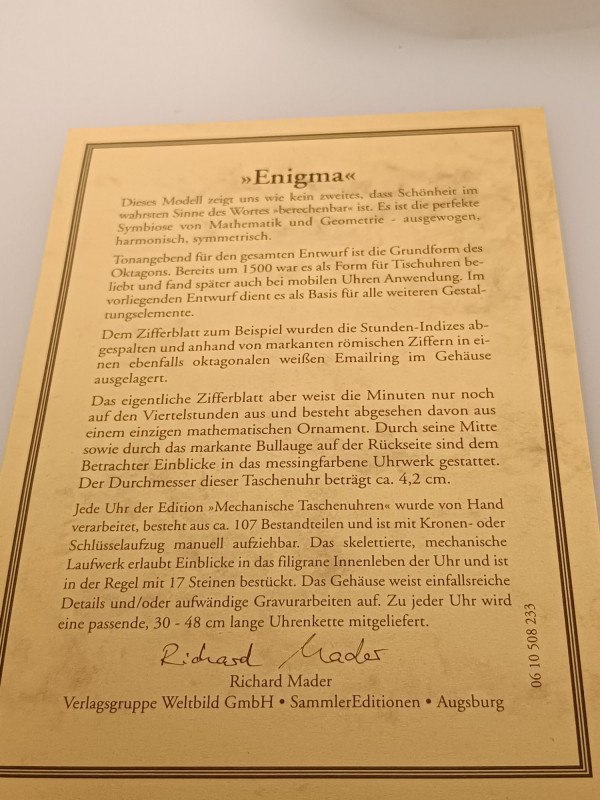 »Enigma«
Dieses Modell zeigt uns wie kein zweites, dass Schönheit im
wahrsten Sinne des Wortes »berechenbar« ist. Es ist die perfekte
Symbiose von Mathematik und Geometrie - ausgewogen,
harmonisch, symmetrisch.
Tonangebend für den gesamten Entwurf ist die Grundform des
Oktagons. Bereits um 1500 war es als Form für Tischuhren be-
liebt und fand später auch bei mobilen Uhren Anwendung. Im
vorliegenden Entwurf dient es als Basis für alle weiteren Gestal-
tungselemente.
Dem Zifferblatt zum Beispiel wurden die Stunden-Indizes ab-
gespalten und anhand von markanten römischen Ziffern in ei-
nen ebenfalls oktagonalen weißen Emailring im Gehäuse
ausgelagert.
Das eigentliche Zifferblatt aber weist die Minuten nur noch
auf den Viertelstunden aus und besteht abgesehen davon aus
einem einzigen mathematischen Ornament. Durch seine Mitte
sowie durch das markante Bullauge auf der Rückseite sind dem
Betrachter Einblicke in das messingfarbene Uhrwerk gestattet.
Der Durchmesser dieser Taschenuhr beträgt ca. 4,2 cm.
Jede Uhr der Edition »Mechanische Taschenuhren« wurde von Hand
verarbeitet, besteht aus ca. 107 Bestandteilen und ist mit Kronen- oder
Schlüsselaufzug manuell aufziehbar. Das skelettierte, mechanische
Laufwerk erlaubt Einblicke in das filigrane Innenleben der Uhr und ist
in der Regel mit 17 Steinen bestückt. Das Gehäuse weist einfallsreiche
Details und/oder aufwändige Gravurarbeiten auf. Zu jeder Uhr wird
eine passende, 30 - 48 cm lange Uhrenkette mitgeliefert.
Richard Mader
Richard Mader
Verlagsgruppe Weltbild GmbH • SammlerEditionen • Augsburg
06 10 508 233